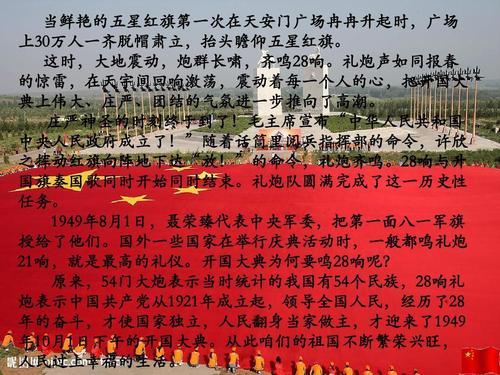 当鲜艳的五星红旗第一次在天安门广场冉冉升起时，广场
上30万人一齐脱帽肃立，抬头瞻仰五星红旗。
这时，大地震动，炮群长啸，齐鸣28响。礼炮声如同报春
的惊雷，在天宇间回响激荡，震动着每一个人的心，把开国大
典上伟大、庄严、团结的气氛进一步推向了高潮。
庄严神圣的时刻终于到了！毛主席宣布“中华人民共和国
中央人民政府成立了！”随着话筒里阅兵指挥部的命令，许欣
之挥动红旗向阵地下达“放！”的命令，礼炮齐鸣。28响与升
国旗奏国歌同时开始同时结束。礼炮队圆满完成了这一历史性
任务。
1949年8月1日，聂荣臻代表中央军委，把第一面八一军旗
授给了他们。国外一些国家在举行庆典活动时，一般都鸣礼炮
21响，就是最高的礼仪。开国大典为何要鸣28响呢？
原来，54门大炮表示当时统计的我国有54个民族，28响礼
炮表示中国共产党从1921年成立起，领导全国人民，经历了28
年的奋斗，才使国家独立，人民翻身当家做主，才迎来了1949
年10月1日下午的开国大典。从此咱们的祖国不断繁荣兴旺，
人民过着幸福的生活。